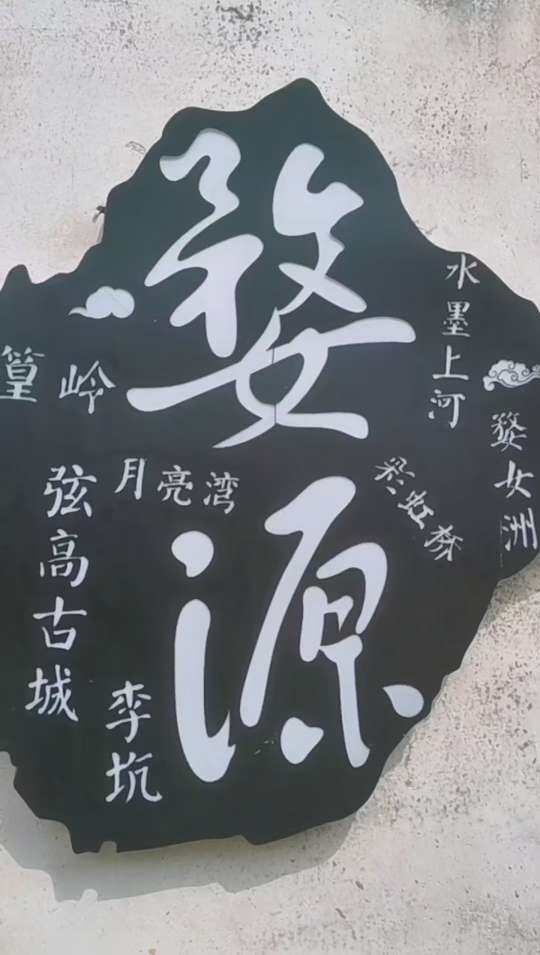 婺源
水墨上河
篁岭
婺女洲
月亮湾
彩虹桥
弦高古城
李坑